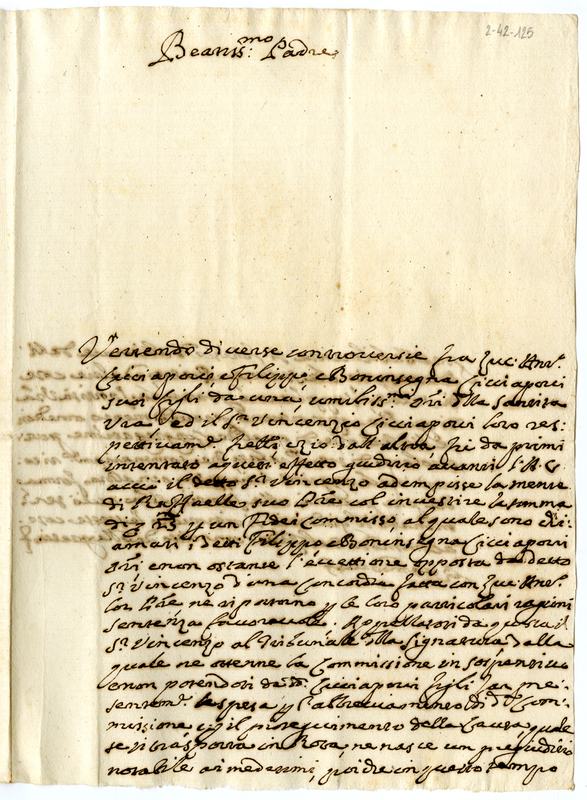 2-42-125
Beatiss.mo Padre
Vertendo diverse controversie fra Luc: Ant.o
Cicciaporci e Filippo e Boninsegna Cicciaporci
suoi figli da una, umiliss.mi Ori della Santità
Vra, ed il Sr. Vincenzio Cicciaporci loro res-
pettivam.e fratello e zio dall'altra, fù da primi
intentato a questi effetto giudizio avanti
acciò il detto Sr. Vincenzo adempisse la mente
di Raffaelle suo Pre col investire la somma
di in un Fidei commisso, al quale sono chi-
amati i detti Filippo e Boninsegna Cicciaporci
Ori, e non ostante l'eccettione opposta da detto
Sr. Vincenzo d'una concordia fatta con Luc: Ant.o
lor Pre ne riportorno p le loro particolari ragioni
sentenza favorevole. Appellatosi da questa il
Sr. Vincenzo al Tribunale della Signatura, dalla
quale ne ottenne la Commissione in sospensivo
e non potendosi da d.i Cicciaporci figli far
la spesa p l'abbreviamento di d.a Com-
missione, il proseguimento della Causa, quale
se si trasporta in Roma, ne nasce un pregiuditio
notabile a i medesimi, poiche in questo tempo